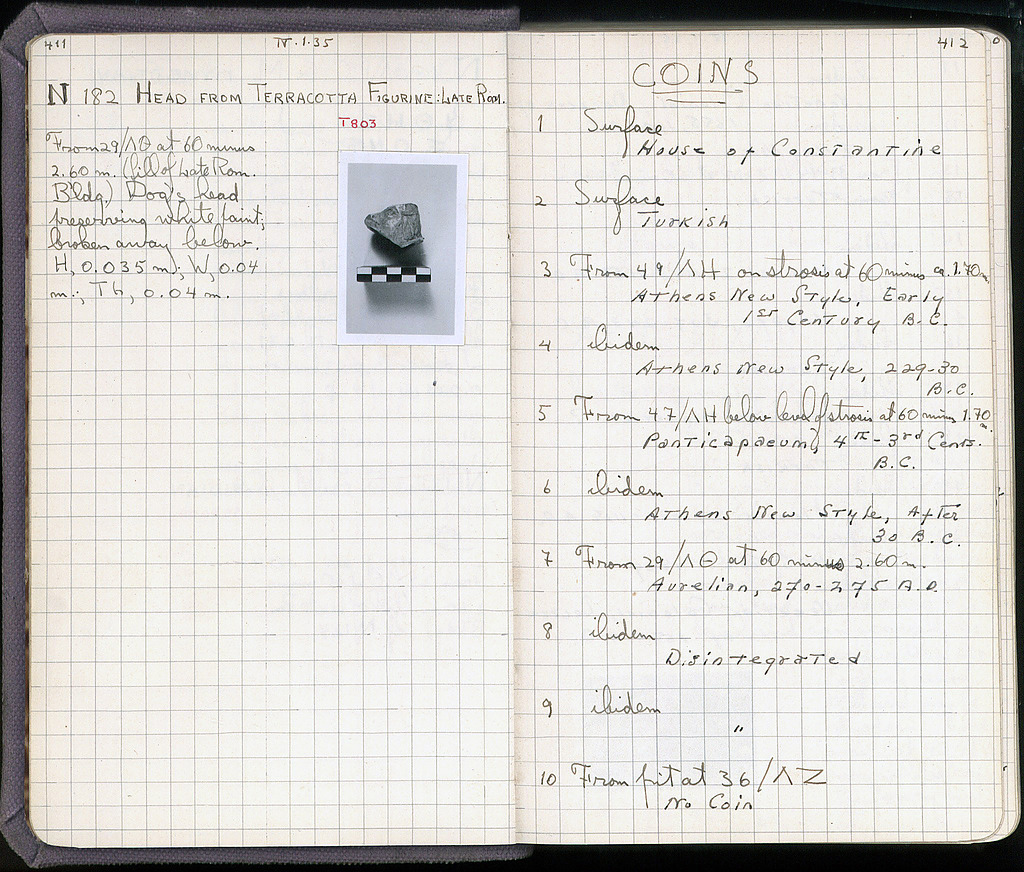 411
IV.1.35
N 182 HEAD FROM TERRACOTTA FIGURINE: LATE ROM.
T803
From 29/ΛΘ at 60 minus
2.60 m. (fill of Late Rom.
B'ldg.) Dog's head
preserving white paint;
broken away below.
H, 0.035 m; W, 0.04
m.; Th, 0.04 m.
412
COINS
1 Surface
House of Constantine
2 Surface
Turkish
3 From 49/ΛH on strosis at 60 minus ca. 1.70 m
Athens New Style, Early
1st Century B.C.
4 ibidem
Athens New Style, 229-30
B.C.
5 From 47/ΛH below level of strosis at 60 minus 1.70
m.
Panticapaeum?, 4th-3rd Cents.
B.C.
6 ibidem
Athens New Style, After
30 B.C.
7 From 29/ΛΘ at 60 minus 2.60 m.
Aurelian, 270-275 A.D.
8 ibidem
Disintegrated
9 ibidem
"
10 From pit at 36/ΛZ
No Coin